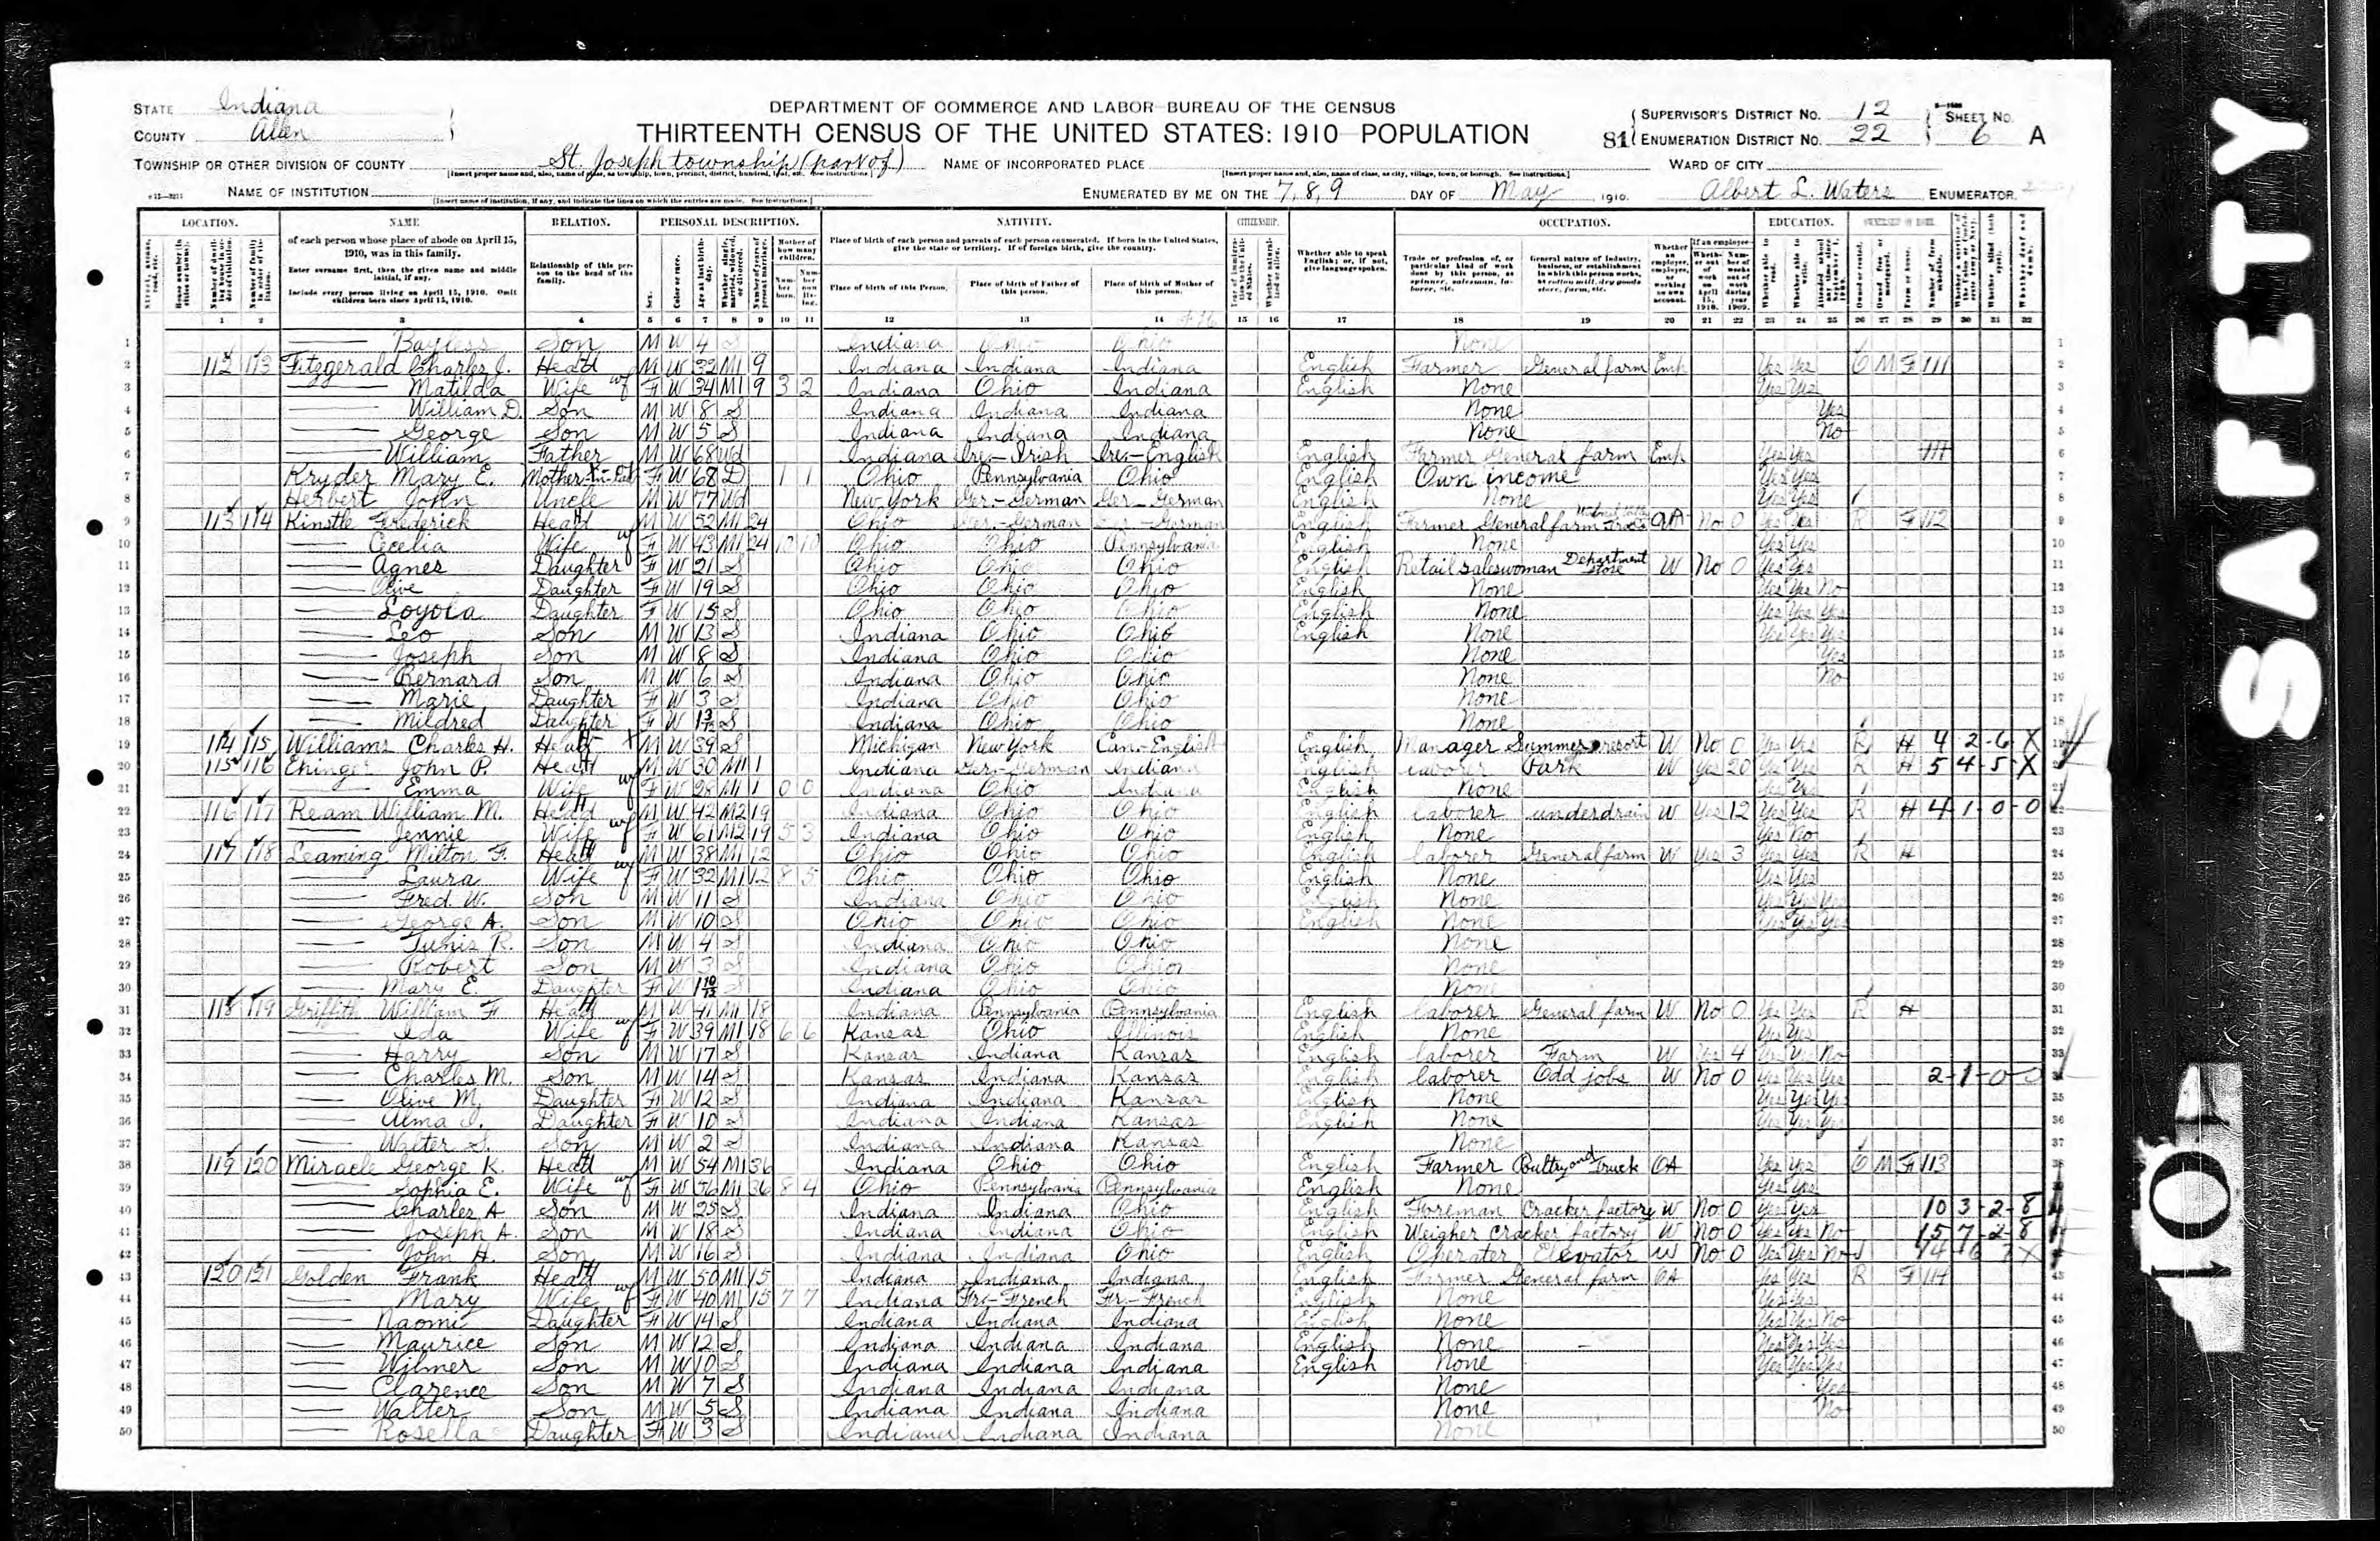 STATE Indiana
COUNTY Allen
DEPARTMENT OF COMMERCE AND LABOR-BUREAU OF THE CENSUS
THIRTEENTH CENSUS OF THE UNITED STATES: 1910 POPULATION
SUPERVISOR'S DISTRICT No. 12
SHEET No.
81 ENUMERATION DISTRICT No. 22 6 A
TOWNSHIP OR OTHER DIVISION OF COUNTY St. Joseph township (part of) NAME OF INCORPORATED PLACE WARD OF CITY
NAME OF INSTITUTION ENUMERATED BY ME ON THE 7, 8, 9 DAY OF May 1910. Albert L. Waters ENUMERATOR
LOCATION. NAME RELATION. PERSONAL DESCRIPTION. NATIVITY. CITIZENSHIP. OCCUPATION. EDUCATION. OWNERSHIP OF HOME.
of each person whose place of abode on April 15, 1910, was in this family.
Enter surname first, then the given name and middle initial, if any.
Include every person living on April 15, 1910. Omit children born since April 15, 1910.
Relationship of this person to the head of the family.
Place of birth of each person and parents of each person enumerated. If born in the United States, give the state or territory. If of foreign birth, give the country.
Place of birth of this Person. Place of birth of Father of this person. Place of birth of Mother of this person.
Whether able to speak English; or, if not, give language spoken.
1 2 3 4 5 6 7 8 9 10 11 12 13 14 15 16 17 18 19 20 21 22 23 24 25 26 27 28 29 30 31 32
1 Bayless Son M W 4 S Indiana Ohio Ohio None 1
2 112 113 Fitzgerald Charles J. Head M W 32 M1 9 Indiana Indiana Indiana English Farmer General farm Emp Yes Yes O M F 111 2
3 Matilda Wife F W 34 M1 9 3 2 Indiana Ohio Indiana English None Yes Yes 3
4 William D. Son M W 8 S Indiana Indiana Indiana None Yes 4
5 George Son M W 5 S Indiana Indiana Indiana None No 5
6 William Father M W 68 Wd Indiana Ire-Irish Ire-English English Farmer General farm Emp Yes Yes 111 6
7 Kryder Mary E. Mother-in-law F W 68 D 1 1 Ohio Pennsylvania Ohio English Own income Yes Yes 7
8 Herbert John Uncle M W 77 Wd New York Ger-German Ger-German English None Yes Yes 8
9 113 114 Kinstle Frederick Head M W 52 M1 24 Ohio Ger-German Ger-German English Farmer General farm OA No 0 Yes Yes R F 112 9
10 Cecelia Wife F W 43 M1 24 10 10 Ohio Ohio Pennsylvania English None Yes Yes 10
11 Agnes Daughter F W 21 S Ohio Ohio Ohio English Retail saleswoman Department store W No 0 Yes Yes 11
12 Olive Daughter F W 19 S Ohio Ohio Ohio English None Yes Yes No 12
13 Loyola Daughter F W 15 S Ohio Ohio Ohio English None Yes Yes Yes 13
14 Leo Son M W 13 S Indiana Ohio Ohio English None Yes Yes Yes 14
15 Joseph Son M W 8 S Indiana Ohio Ohio None Yes 15
16 Bernard Son M W 6 S Indiana Ohio Ohio None No 16
17 Marie Daughter F W 3 S Indiana Ohio Ohio None 17
18 Mildred Daughter F W 1 3/12 S Indiana Ohio Ohio None 18
19 114 115 Williams Charles H. Head M W 39 S Michigan New York Can-English English Manager Summer resort W No 0 Yes Yes R H 4 2-6 X 19
20 115 116 Ehinger John P. Head M W 30 M1 1 Indiana Ger-German Indiana English laborer Park W Yes 20 Yes Yes R H 5 4-5-X
21 Emma Wife F W 28 M1 1 0 0 Indiana Ohio Indiana English None Yes Yes 21
22 116 117 Ream William M. Head M W 42 M2 19 Indiana Ohio Ohio English laborer underdrain W Yes 12 Yes Yes R H 4-1-0-0 22
23 Jennie Wife F W 61 M2 19 5 3 Indiana Ohio Ohio English None Yes No 23
24 117 118 Leaming Milton F. Head M W 38 M1 12 Ohio Ohio Ohio English laborer General farm W Yes 3 Yes Yes R H 24
25 Laura Wife F W 32 M1 12 8 5 Ohio Ohio Ohio English None Yes Yes 25
26 Fred. W. Son M W 11 S Indiana Ohio Ohio English None Yes Yes Yes 26
27 George A. Son M W 10 S Ohio Ohio Ohio English None Yes Yes Yes 27
28 Tunis R. Son M W 4 S Indiana Ohio Ohio None 28
29 Robert Son M W 3 S Indiana Ohio Ohio None 29
30 Mary E. Daughter F W 1 10/12 S Indiana Ohio Ohio None 30
31 118 119 Griffith William F Head M W 41 M1 18 Indiana Pennsylvania Pennsylvania English laborer General farm W No 0 Yes Yes R H 31
32 Ida Wife F W 39 M1 18 6 6 Kansas Ohio Illinois English None Yes Yes 32
33 Harry Son M W 17 S Kansas Indiana Kansas English laborer Farm W Yes 4 Yes Yes No 33
34 Charles M. Son M W 14 S Kansas Indiana Kansas English laborer Odd jobs W No 0 Yes Yes Yes 2-1-0-0
35 Olive M. Daughter F W 12 S Indiana Indiana Kansas English None Yes Yes Yes 35
36 Alma I. Daughter F W 10 S Indiana Indiana Kansas English None Yes Yes Yes 36
37 Walter S. Son M W 2 S Indiana Indiana Kansas None 37
38 119 120 Miracle George K. Head M W 54 M1 36 Indiana Ohio Ohio English Farmer Poultry and Truck OA Yes Yes O M F 113 38
39 Sophia E. Wife F W 56 M1 36 8 4 Ohio Pennsylvania Pennsylvania English None Yes Yes 39
40 Charles A Son M W 25 S Indiana Indiana Ohio English Foreman Cracker factory W No 0 Yes Yes 10 3-2-8
41 Joseph A. Son M W 18 S Indiana Indiana Ohio English Weigher Cracker factory W No 0 Yes Yes No 15 7-2-8
42 John H. Son M W 16 S Indiana Indiana Ohio English Operater Elevator W No 0 Yes Yes No
43 120 121 Golden Frank Head M W 50 M1 15 Indiana Indiana Indiana English Farmer General farm OA Yes Yes R F 114 43
44 Mary Wife F W 40 M1 15 7 7 Indiana Fr-French Fr-French English None Yes Yes 44
45 Naomi Daughter F W 14 S Indiana Indiana Indiana English None Yes Yes No 45
46 Maurice Son M W 12 S Indiana Indiana Indiana English None Yes Yes Yes 46
47 Wilmer Son M W 10 S Indiana Indiana Indiana English None Yes Yes Yes 47
48 Clarence Son M W 7 S Indiana Indiana Indiana None Yes 48
49 Walter Son M W 5 S Indiana Indiana Indiana None No 49
50 Rosella Daughter F W 3 S Indiana Indiana Indiana None 50
SAFETY